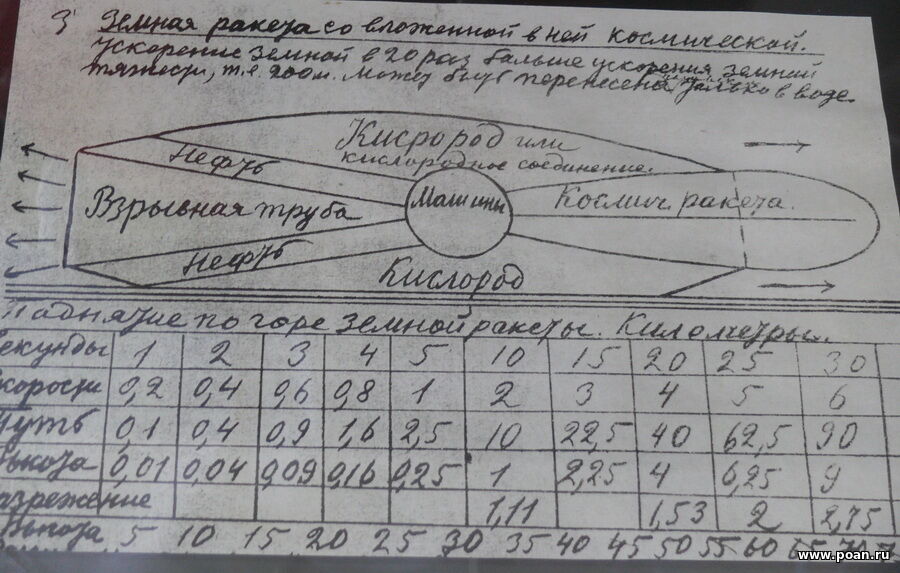 3) Земная ракета со вложенной в ней космической.
Ускорение земной в 20 раз больше ускорения земной
тяжести, т.е. 200 м. Может быть перенесено только в воде.
Кислород или
кислородное соединение.
Нефть
Машины
Космич. ракета.
Взрывная труба
Нефть
Кислород
Поднятие по горе земной ракеты. Километры.
екунды 1 2 3 4 5 10 15 20 25 30
корость 0,2 0,4 0,6 0,8 1 2 3 4 5 6
Путь 0,1 0,4 0,9 1,6 2,5 10 22,5 40 62,5 90
Высота 0,01 0,04 0,09 0,16 0,25 1 2,25 4 6,25 9
азрежение 1,11 1,53 2 2,75
Высота 5 10 15 20 25 30 35 40 45 50 55 60 65 70
www.poan.ru